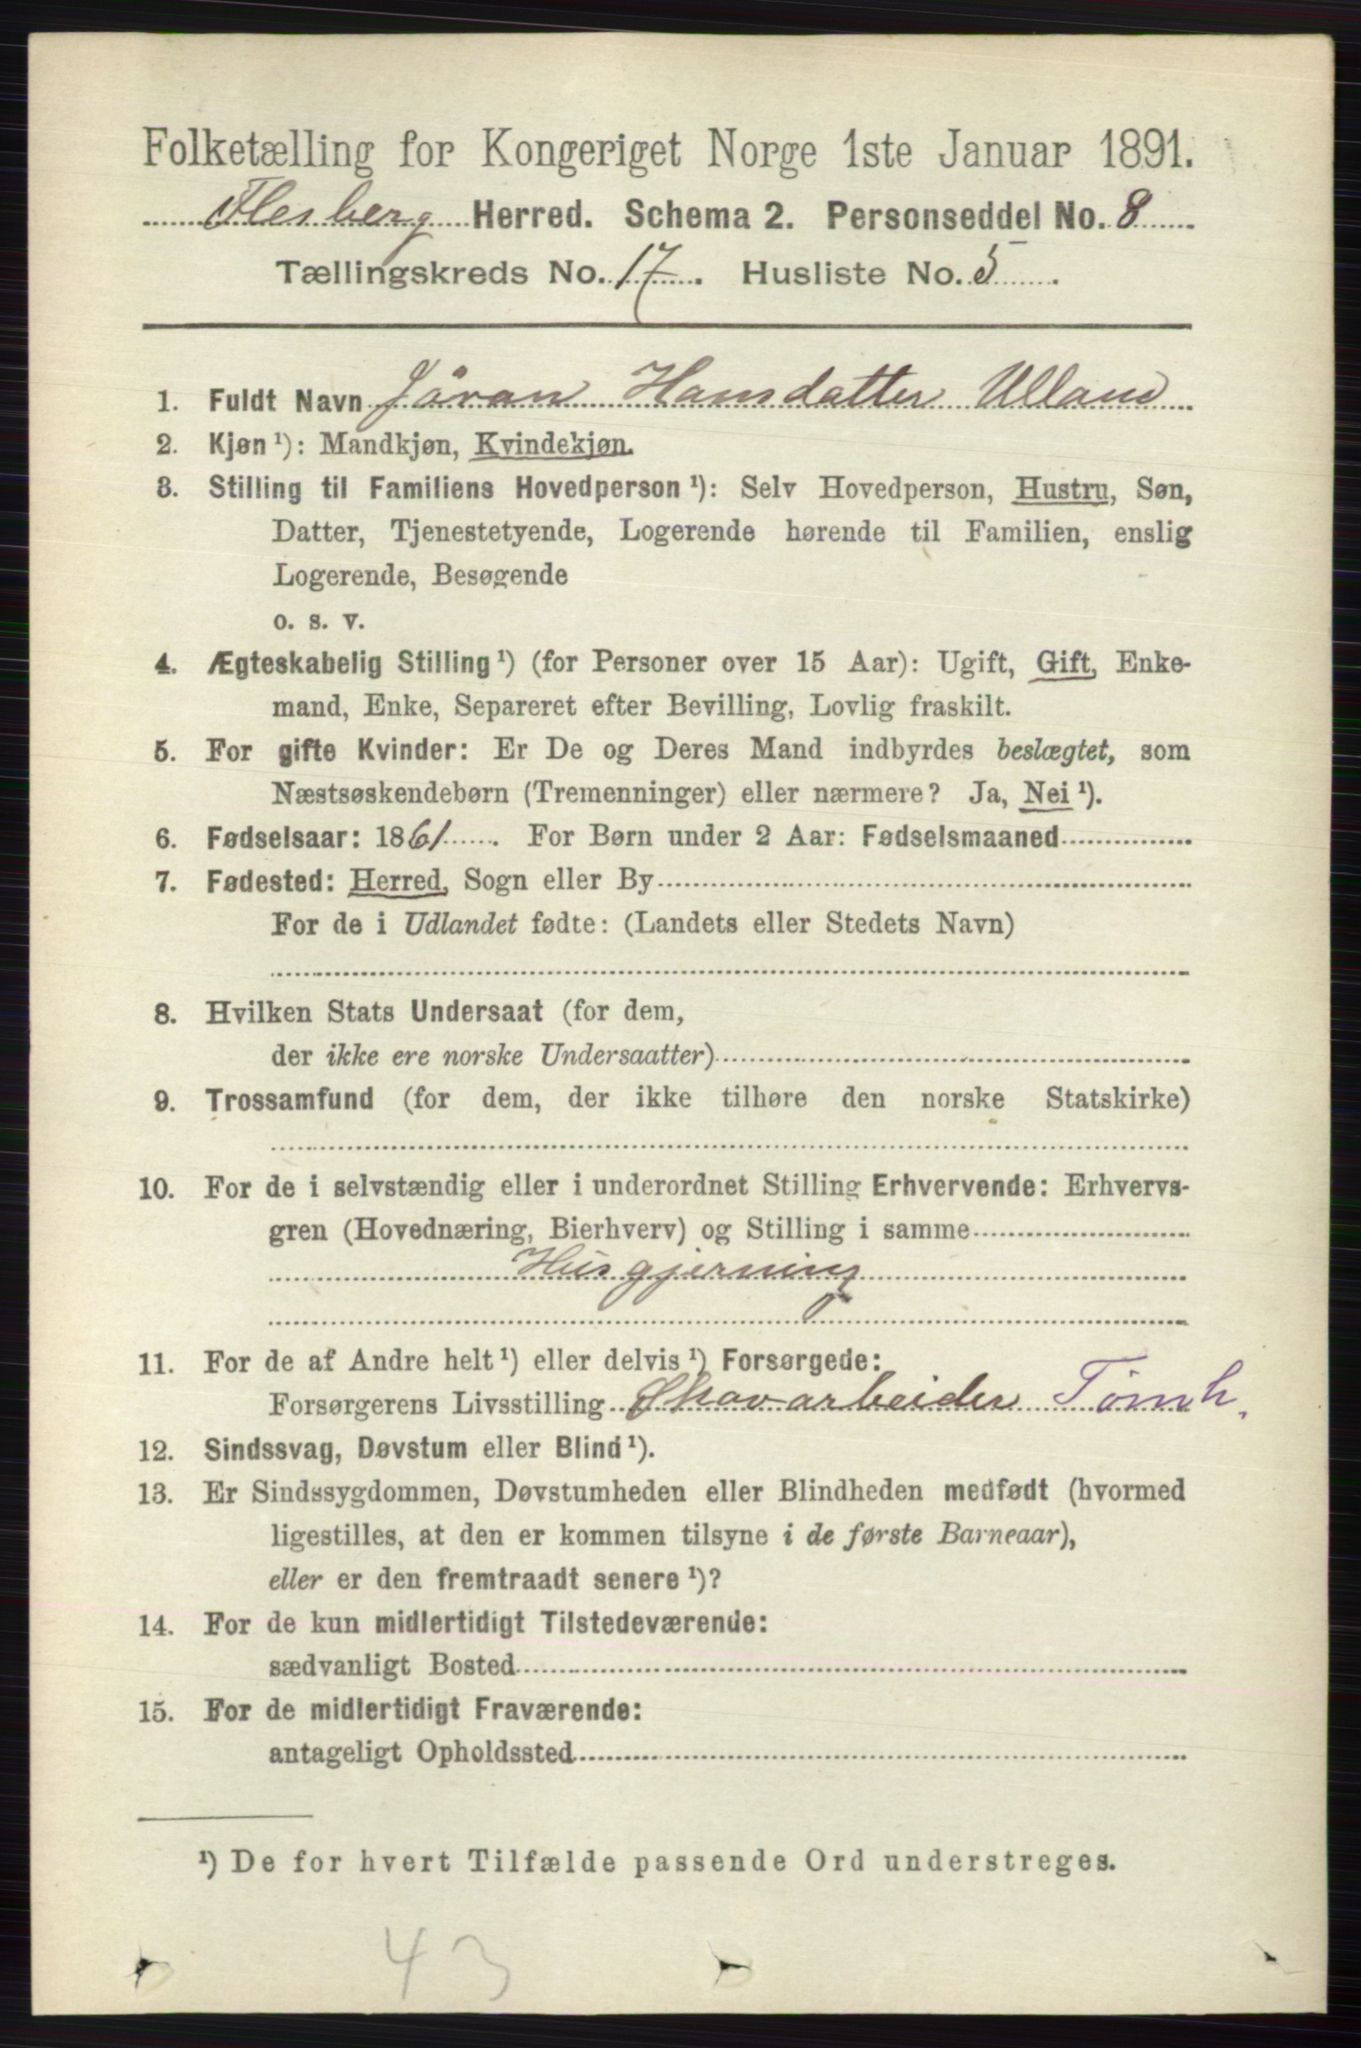 Folketælling for Kongeriget Norge 1ste Januar 1891.
Flesberg Herred. Schema 2. Personseddel No. 8
Tællingskreds No. 17. Husliste No. 5.
1. Fuldt Navn Jöran Hansdatter Ulland
2. Kjøn ¹): Mandkjøn, Kvindekjøn.
3. Stilling til Familiens Hovedperson ¹): Selv Hovedperson, Hustru, Søn,
Datter, Tjenestetyende, Logerende hørende til Familien, enslig
Logerende, Besøgende
o. s. v.
4. Ægteskabelig Stilling ¹) (for Personer over 15 Aar): Ugift, Gift, Enke-
mand, Enke, Separeret efter Bevilling, Lovlig fraskilt.
5. For gifte Kvinder: Er De og Deres Mand indbyrdes beslægtet, som
Næstsøskendebørn (Tremenninger) eller nærmere? Ja, Nei ¹).
6. Fødselsaar: 1861. For Børn under 2 Aar: Fødselsmaaned
7. Fødested: Herred, Sogn eller By
For de i Udlandet fødte: (Landets eller Stedets Navn)
8. Hvilken Stats Undersaat (for dem,
der ikke ere norske Undersaatter)
9. Trossamfund (for dem, der ikke tilhøre den norske Statskirke)
10. For de i selvstændig eller i underordnet Stilling Erhvervende: Erhvervs-
gren (Hovednæring, Bierhverv) og Stilling i samme
Husgjerning
11. For de af Andre helt ¹) eller delvis ¹) Forsørgede:
Forsørgerens Livsstilling Skovarbeider Tömh.
12. Sindssvag, Døvstum eller Blind ¹).
13. Er Sindssygdommen, Døvstumheden eller Blindheden medfødt (hvormed
ligestilles, at den er kommen tilsyne i de første Barneaar),
eller er den fremtraadt senere ¹)?
14. For de kun midlertidigt Tilstedeværende:
sædvanligt Bosted
15. For de midlertidigt Fraværende:
antageligt Opholdssted
¹) De for hvert Tilfælde passende Ord understreges.
43